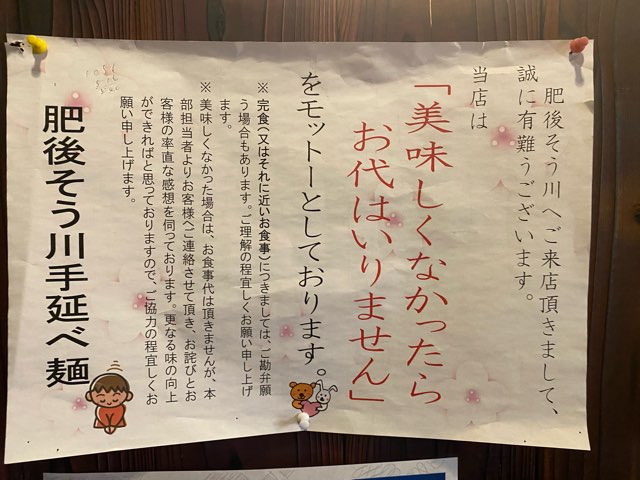 肥後そう川へご来店頂きまして、
誠に有難うございます。
当店は
「美味しくなかったら
お代はいりません」
をモットーとしております。
※完食（又はそれに近いお食事）につきましては、ご勘弁願
う場合もあります。ご理解の程宜しくお願い申し上げ
ます。
※美味しくなかった場合は、お食事代は頂きませんが、本
部担当者よりお客様へご連絡させて頂き、お詫びとお
客様の率直な感想を伺っております。更なる味の向上
ができればと思っておりますので、ご協力の程宜しくお
願い申し上げます。
肥後そう川手延べ麺